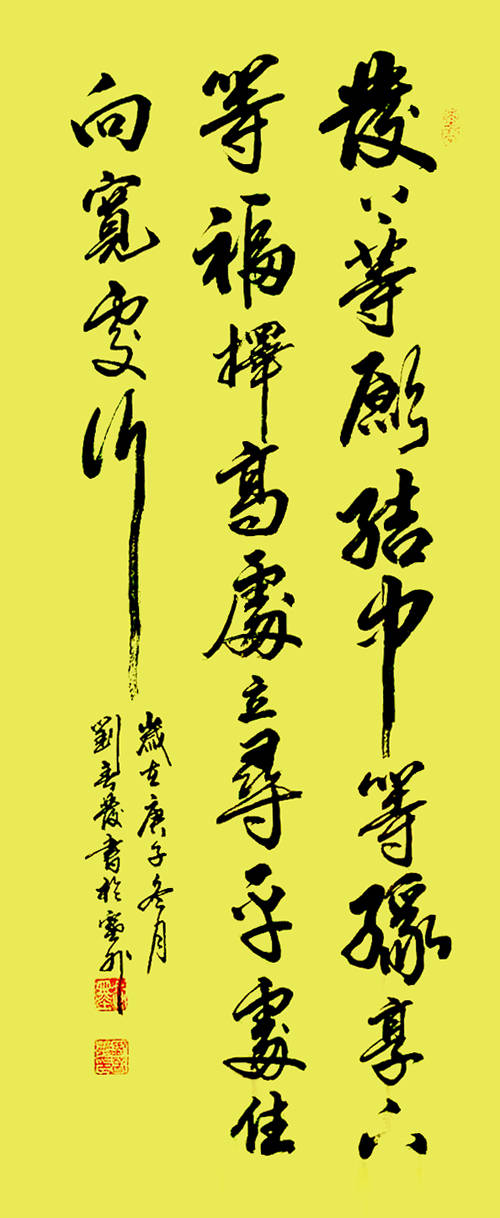 發上等願結中等緣享下
等福擇高處立尋平處住
向寬處行
歲在庚子冬月
劉春發書於